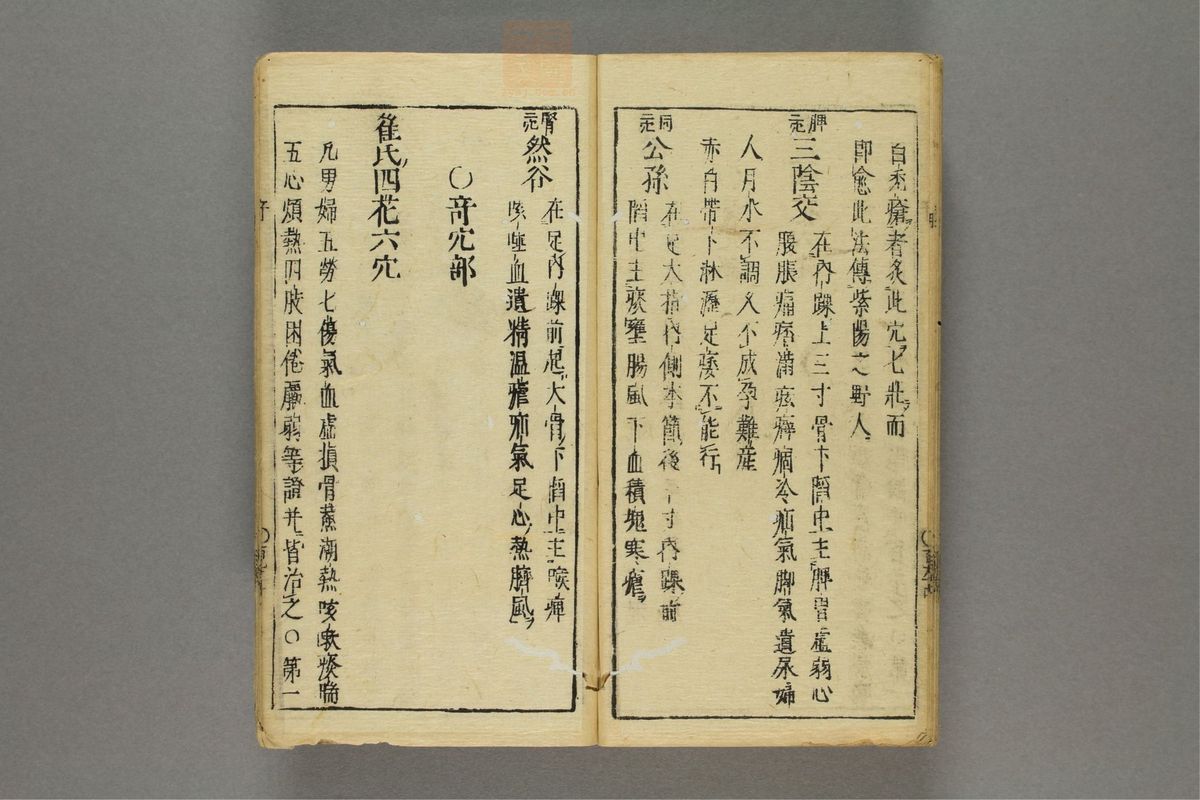 白禿瘡者炙此穴七壯而
即愈此法傳紫陽之野人
脾三
三陰交
在內踝上三寸骨下陷中主脾胃虛弱心
腹脹痛痞滿痃癖痼冷疝氣脚氣遺尿婦
人月水不調久不成孕難産
赤白帶下淋瀝足痿不能行
同三
公孫
在足大指內側本節後一寸內踝前
陷中主痰壅腸風下血積塊寒瘧
腎三
然谷
在足內踝前起大骨下陷中主喉痺
咳唾血遺精温瘧疝氣足心熱臍風
○奇穴部
崔氏四花六穴
凡男婦五勞七傷氣血虛損骨蒸潮熱咳嗽痰喘
五心煩熱四肢困倦羸弱等證并皆治之○第一